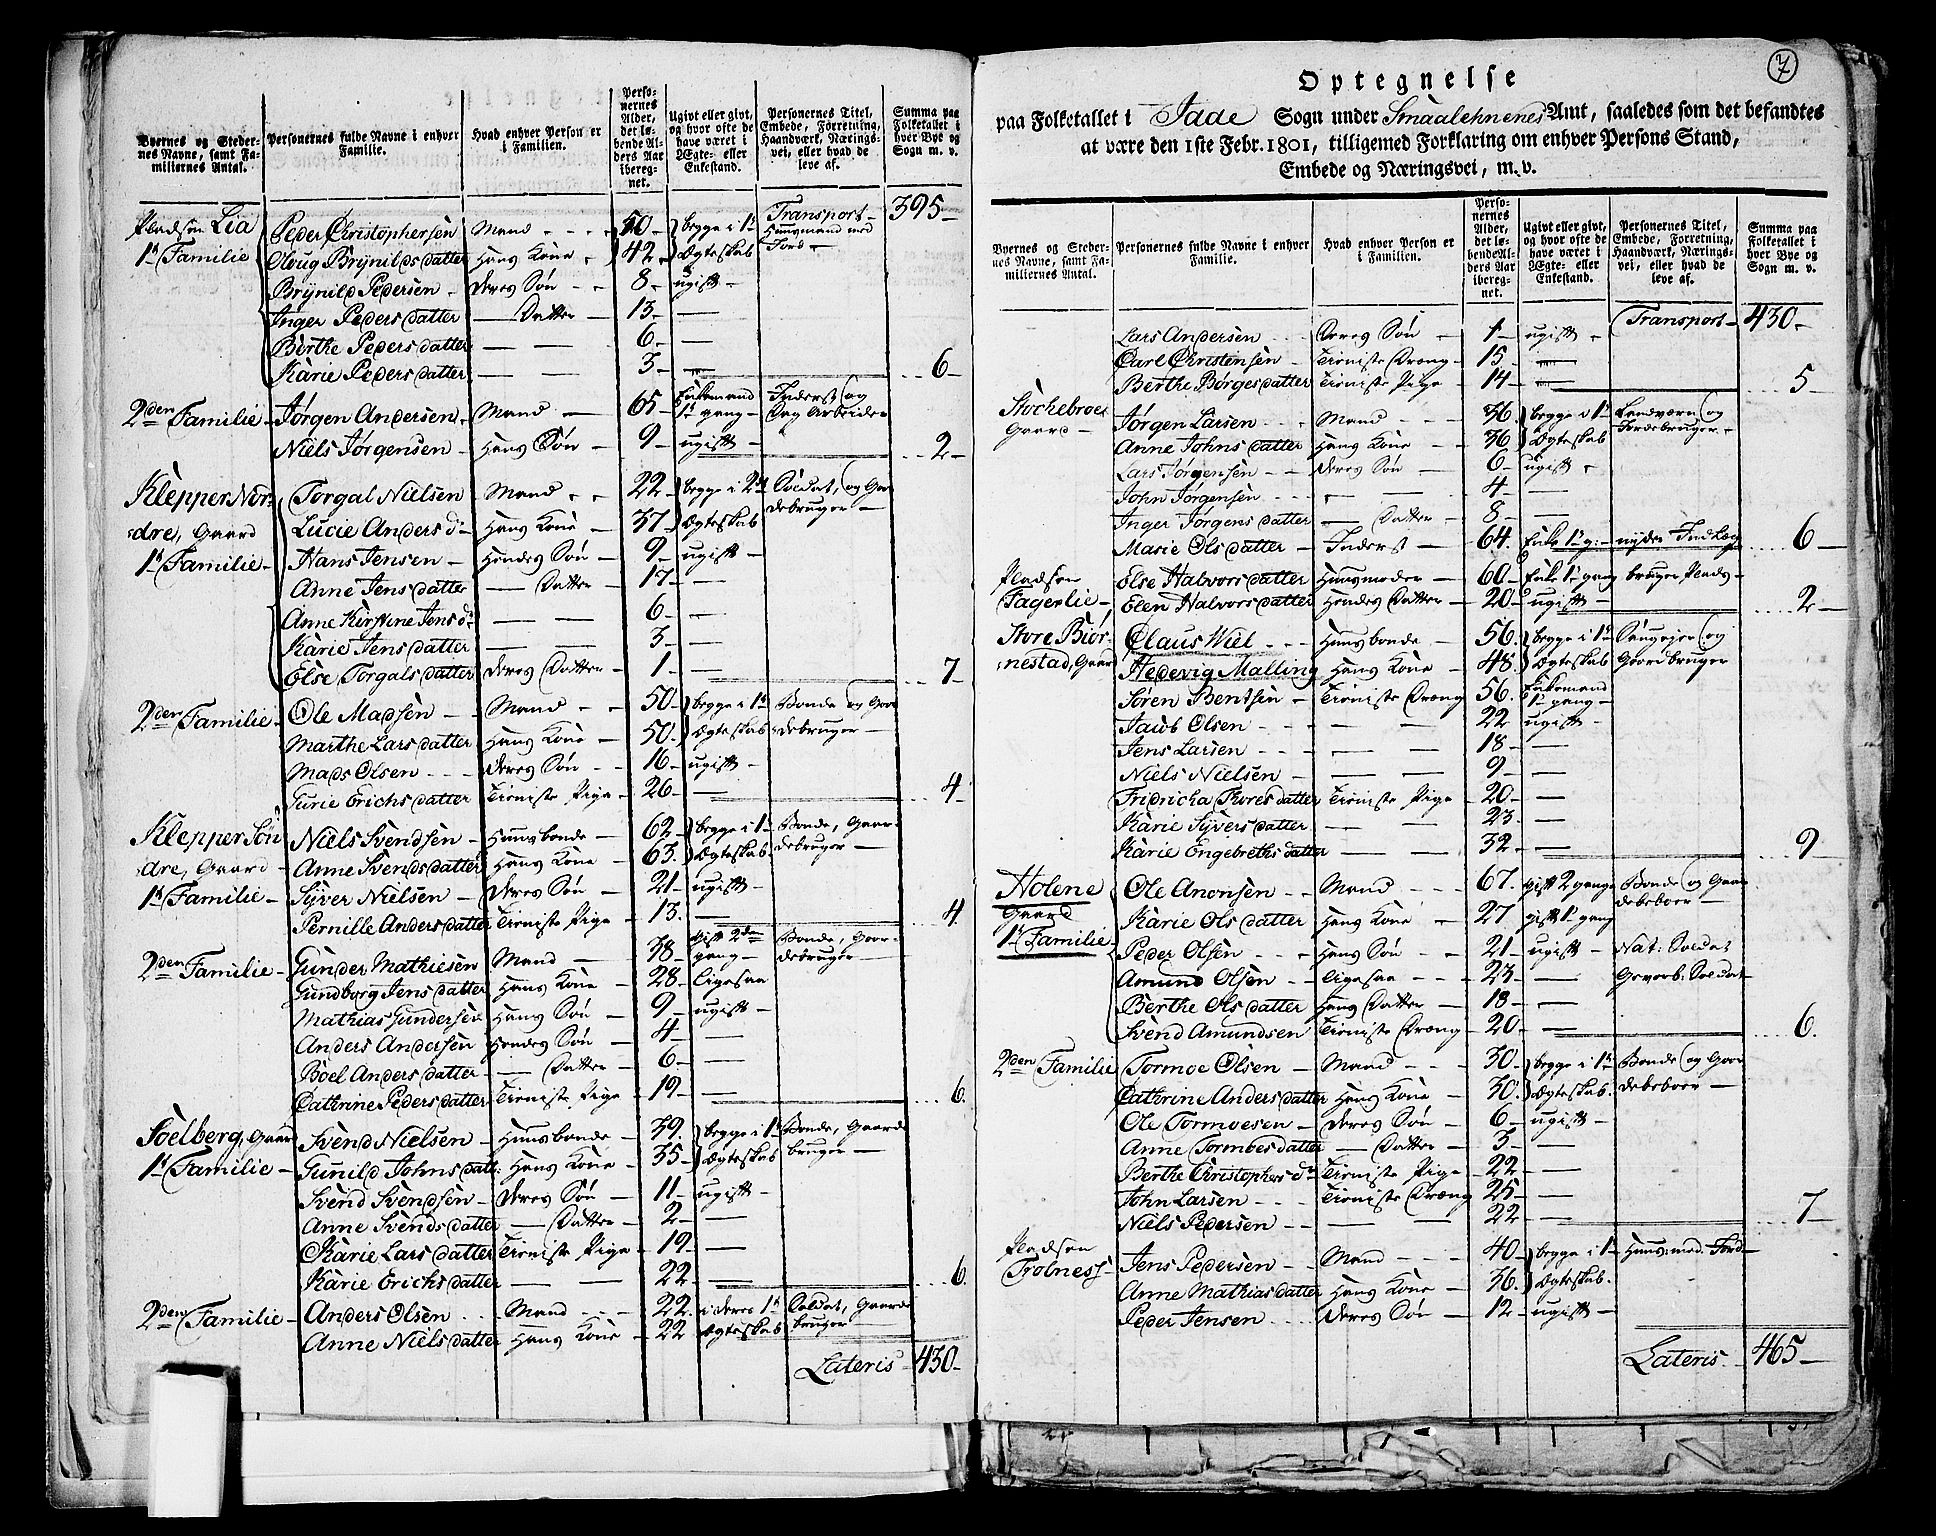 Byernes og Stedernes Navne, samt Familiernes Antal.
Personernes fulde Navne i enhver Familie.
Hvad enhver Person er i Familien.
Personernes Alder, det løbende Alders Aar iberegnet.
Ugivt eller givt, og hvor ofte de have været i Ægte- eller Enkestand.
Personernes Titel, Embede, Forretning, Haandværk, Næringsvei, eller hvad de leve af.
Summa paa Folketallet i hver Bye og Sogn m. v.
Transport 395
Pladsen Lia Peder Christophersen Mand 50 begge i 1te Huusmand med
1te Familie Oloug Brynilds datter Hans Kone 42 Ægteskab Jord
Brynild Pedersen Deres Søn 8 ugift
Inger Peders datter — Datter 13 —
Berthe Peders datter — — 6 —
Karie Peders datter — — 3 — 6
2den Familie Jørgen Andersen Mand 65 Enkemand 1te gang Inderst og Dag Arbeider
Niels Jørgensen Hans Søn 9 ugift 2
Klepper Nor- Torgal Nielsen Mand 22 begge i 2det Soldat, og Gaar
dre, Gaard Lucie Anders dr Hans Kone 37 Ægteskab debruger
1te Familie Hans Jensen Hendes Søn 9 ugift
Anne Jens datter — Datter 17 —
Anne Kirstine Jens dr — — 6 —
Karie Jens datter — — 3 —
Else Torgals datter Deres Datter 1 — 7
2den Familie Ole Madsen Mand 50 begge i 1te Bonde og Gaar
Marthe Lars datter Hans Kone 50 Ægteskab debruger
Mads Olsen Deres Søn 16 ugift
Gurie Erichs datter Tieniste Pige 26 — 4
Klepper Søn Niels Svendsen Huusbonde 62 begge i 1te Bonde, Gaar
dre, Gaard Anne Svends datter Hans Kone 63 Ægteskab debruger
1te Familie Syver Nielsen Deres Søn 21 ugift
Pernille Anders datter Tieniste Pige 13 — 4
2den Familie Gunder Mathiesen Mand 38 gift 2den gang Bonde, Gaardebruger
Gundborg Jens datter Hans Kone 28 Ligesaa
Mathias Gundersen Hans Søn 9 ugift
Anders Andersen Hendes Søn 4 —
Boel Anders datter — Datter 6 —
Cathrine Peders datter Tieniste Pige 19 — 6
Soelberg, Gaard Svend Nielsen Huusbonde 39 begge i 1te Bonde, Gaard
1te Familie Gunild Johns datt: Hans Kone 35 Ægteskab bruger
Svend Svendsen Deres Søn 11 ugift
Anne Svends datter — Datter 2 —
Karie Lars datter Tieniste Pige 19 —
Karie Erichs datter — — 22 — 6
2den Familie Anders Olsen Mand 22 i deres 1te Soldat, Gaard
Anne Niels datter Hans Kone 22 Ægteskab bruger
Lateris 430
7
Optegnelse
paa Folketallet i Idde Sogn under Smaalehnenes Amt, saaledes som det befandtes
at være den 1ste Febr. 1801, tilligemed Forklaring om enhver Persons Stand,
Embede og Næringsvei, m. v.
Byernes og Stedernes Navne, samt Familiernes Antal.
Personernes fulde Navne i enhver Familie.
Hvad enhver Person er i Familien.
Personernes Alder, det løbende Alders Aar iberegnet.
Ugivt eller givt, og hvor ofte de have været i Ægte- eller Enkestand.
Personernes Titel, Embede, Forretning, Haandværk, Næringsvei, eller hvad de leve af.
Summa paa Folketallet i hver Bye og Sogn m. v.
Transport 430
Lars Andersen Deres Søn 1 ugift
Carl Christensen Tieniste Dreng 15 —
Berthe Børges datter Tieniste Pige 14 — 5
Stochebroe Jørgen Larsen Mand 36 begge i 1te Landværn og
Gaard Anne Johns datter Hans Kone 36 Ægteskab Jordebruger
Lars Jørgensen Deres Søn 6 ugift
John Jørgensen — — 4 —
Inger Jørgens datter — Datter 8 —
Marie Ols datter Inderst 64 Enke 1te g: nyder Indlæg 6
Pladsen Else Halvors datter Huusmoder 60 Enke 1te gang bruger Plads
Fagerlie Elen Halvors datter Hendes Datter 20 ugift 2
Store Biør- Olaus Wiel Huusbonde 56 begge i 1te Saugejer og
nestad, Gaard Hedevig Malling Hans Kone 48 Ægteskab Gaardbruger
Søren Bentsen Tieniste Dreng 56 Enkemand 1te gang
Jacob Olsen — — 22 ugift
Jens Larsen — — 18 —
Niels Nielsen — — 9 —
Fridricha Thores datter Tieniste Pige 20 —
Karie Syvers datter — — 23 —
Karie Engebreths datter — — 32 — 9
Holene Ole Anonsen Mand 67 gift 2 gange Bonde og Gaar
Gaard Karie Ols datter Hans Kone 27 gift 1te gang debeboer
1te Familie Peder Olsen Hans Søn 21 ugift Nat: Soldat
Amund Olsen ligesaa 23 — Gevorb: Soldat
Berthe Ols datter Hans Datter 18 —
Svend Amundsen Tieniste Dreng 20 — 6
2den Familie Tormoe Olsen Mand 30 begge i 1te Bonde og Gaar
Cathrine Anders datter Hans Kone 30 Ægteskab debeboer
Ole Tormoesen Deres Søn 6 ugift
Anne Tormoes datter — Datter 3 —
Berthe Christophers dr Tieniste Pige 22 —
John Larsen Tieniste Dreng 25 —
Niels Pedersen — — 22 — 7
Pladsen Jens Pedersen Mand 40 begge i 1te Huus: med Jord
Trolness Anne Mathias datter Hans Kone 36 Ægteskab
Peder Jensen Deres Søn 12 ugift
Lateris 465